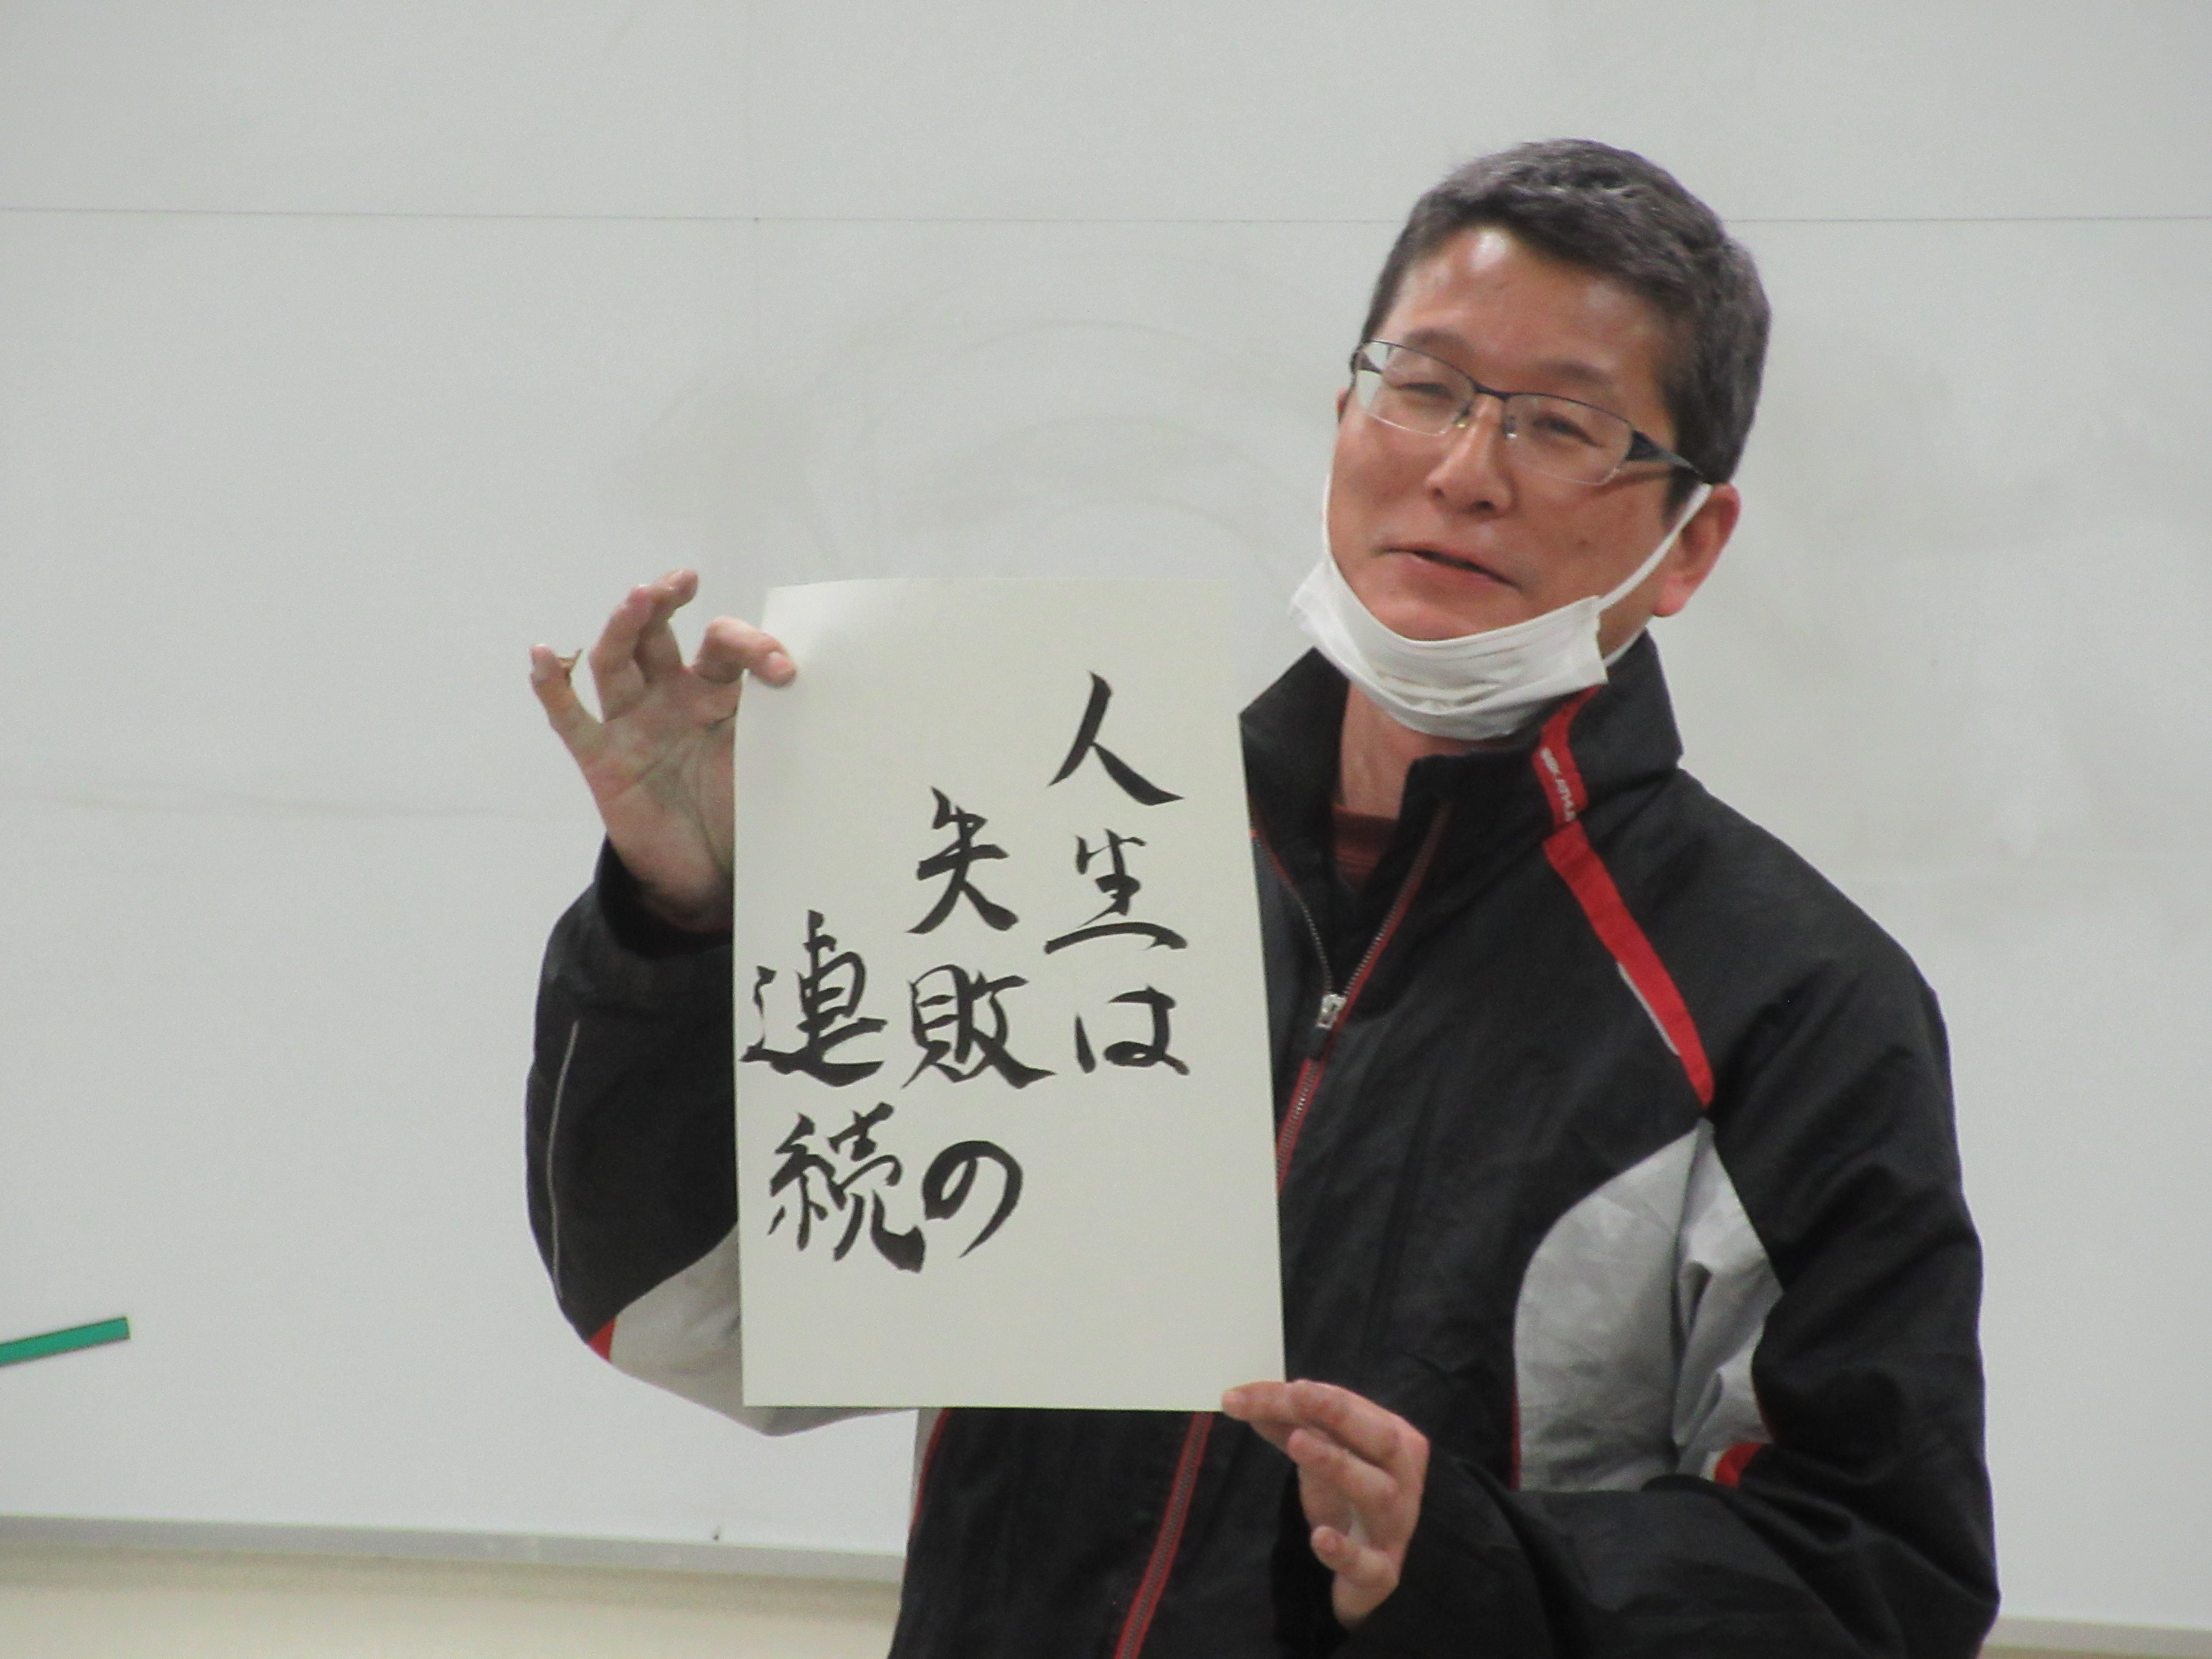 人生は
失敗の
連続